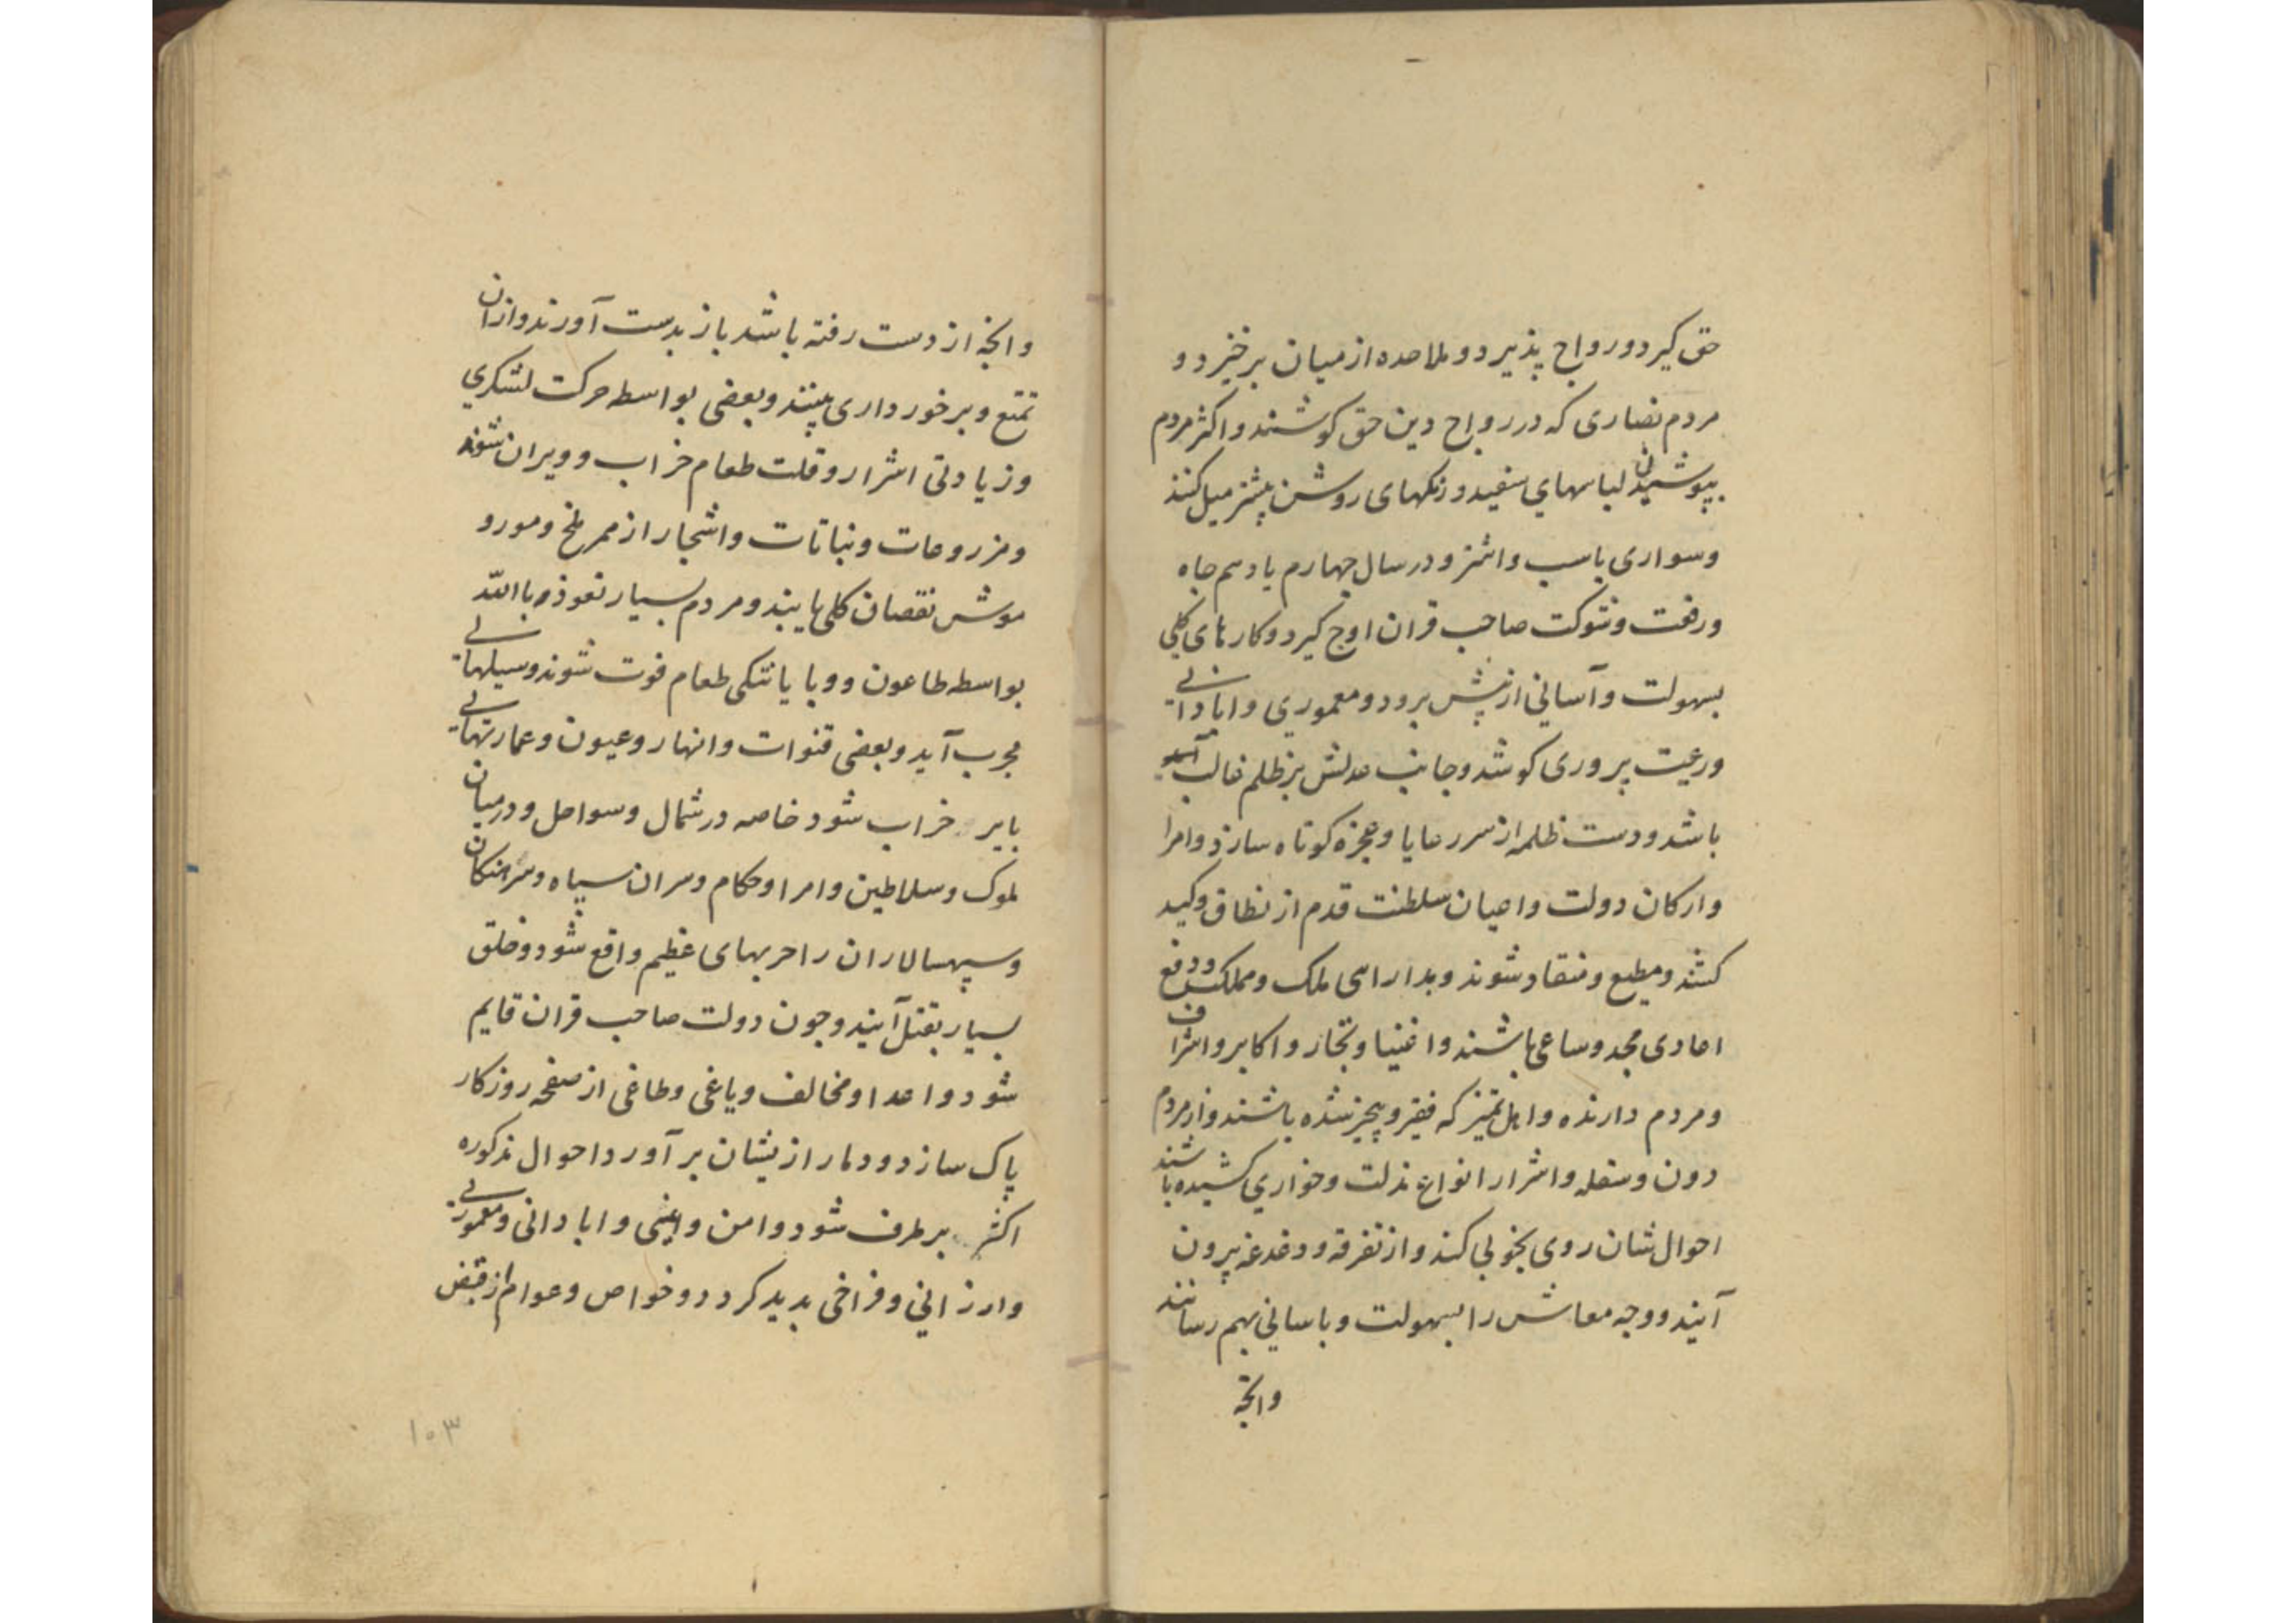 حق گیرد و رواج پذیرد و ملاحده از میان برخیزد و
مردم نصاری که در رواج دین حق کوشند و اکثر مردم
بپوشیدن لباسهای سفید و رنکهای روشن بیشتر میل کنند
و سواری باسب و اشتر و در سال چهارم یا دهم جاه
و رفعت و شوکت صاحب قران اوج کیرد و کارهای کلی
بسهولت و آسانی از پیش برود و معموری و ابادانی
و رعیت پروری کوشد و جانب عدلش بر ظلم غالب
باشد و دست ظلمه از سر رعایا و عجزه کوتاه سازد و امرا
و ارکان دولت و اعیان سلطنت قدم از نطاق وکید
کشند و مطیع و منقاد شوند و بدارایی ملک و مملکت و دفع
اعادی مجد و ساعی باشند و اغنیا و تجار و اکابر و اشراف
و مردم دارنده و اهل تمیز که فقیر و بیچیز شده باشند و از مردم
دون و سفله و اشرار انواع مذلت و خواری کشیده باشند
احوالشان روی بخوبی کند و از تفرقه و دغدغه بیرون
آیند و وجه معاش را بسهولت و باسانی بهم رسانند
وانچه
وانچه از دست رفته باشد باز بدست آورند و ازان
تمتع و برخورداری بینند و بعضی بواسطه حرکت لشکری
و زیادتی اشرار و قلت طعام خراب و ویران شوند
و مزروعات و نباتات و اشجار از ممر ملخ و مور و
موش نقصان کلی یابند و مردم بسیار نعوذ بالله
بواسطه طاعون و وبا یا تنکی طعام فوت شوند و سیلهای
مجرب آید و بعضی قنوات و انهار و عیون و عمارتهای
بایر خراب شود خاصه در شمال و سواحل و درمیان
ملوک و سلاطین و امرا و حکام و سران سپاه و سرهنکان
و سپهسالاران را حربهای عظیم واقع شود و خلق
بسیار بقتل آیند و چون دولت صاحب قران قایم
شود و اعدا و مخالف و یاغی و طاغی از صفحه روزکار
پاک سازد و دمار ازیشان بر آورد احوال مذکوره
اکثر برطرف شود و امن و ایمنی و ابادانی و معموری
و ارزانی و فراخی بدید کردد و خواص و عوام از قبض
۱۰۳